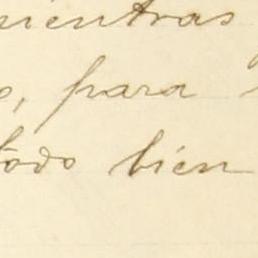 mientras
, para
todo bien